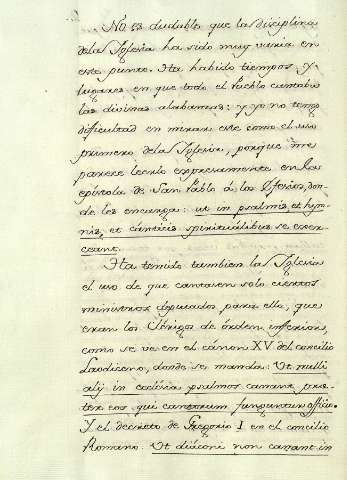 No es dudable que la disciplina
de la Iglesia ha sido muy varia en
este punto. Ha habido tiempos y
lugares en que todo el Pueblo cantaba
las divinas alabanzas: y yo no tengo
dificultad en mirar este como el uso
primero de la Iglesia, porque me
parece leerlo expresamente en la
epístola de San Pablo á los Efesios, don-
de les encarga: ut in psalmis, et hym-
nis, et canticis spiritualibus se exer-
ceant.
Ha tenido tambien la Iglesia
el uso de que cantasen solo ciertos
ministros diputados para ello, que
eran los Clérigos de órden inferior,
como se ve en el cánon XV del concilio
Laodiceno, donde se manda: Ut nulli
alij in ecclesia psalmos canant præ-
ter eos qui cantorum funguntur officio.
Y el decreto de Gregorio I en el concilio
Romano. Ut diáconi non canant in